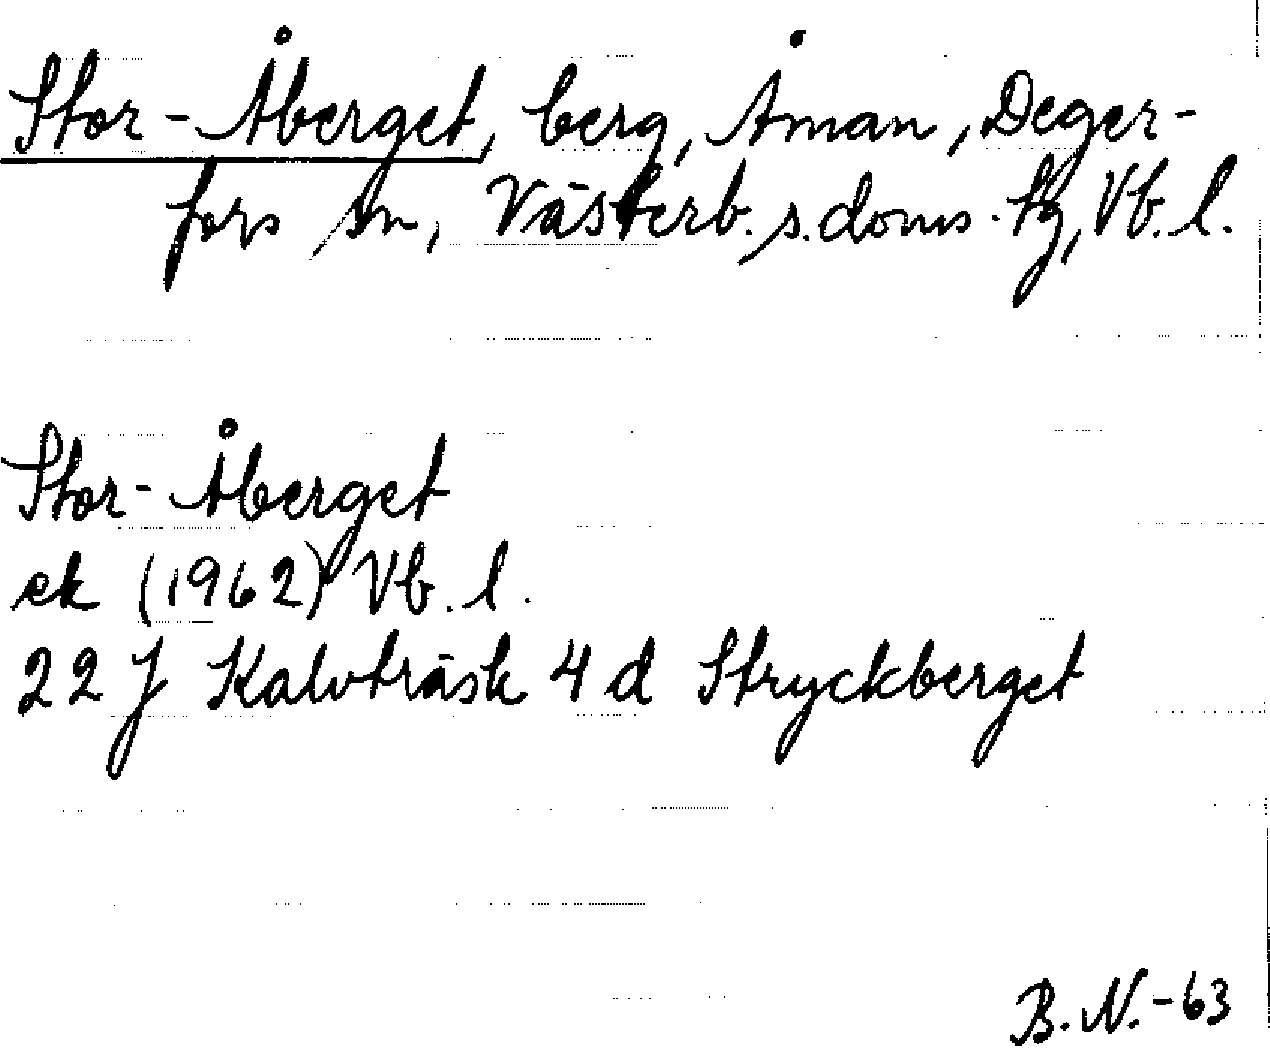 Stor-Åberget, berg, Åman, Deger-
fors sn, Västerb. s. doms. tg, Vb. l.
Stor-Åberget
ek (1962) Vb. l.
22 J Kalvträsk 4 d Stryckberget
B. N. -63